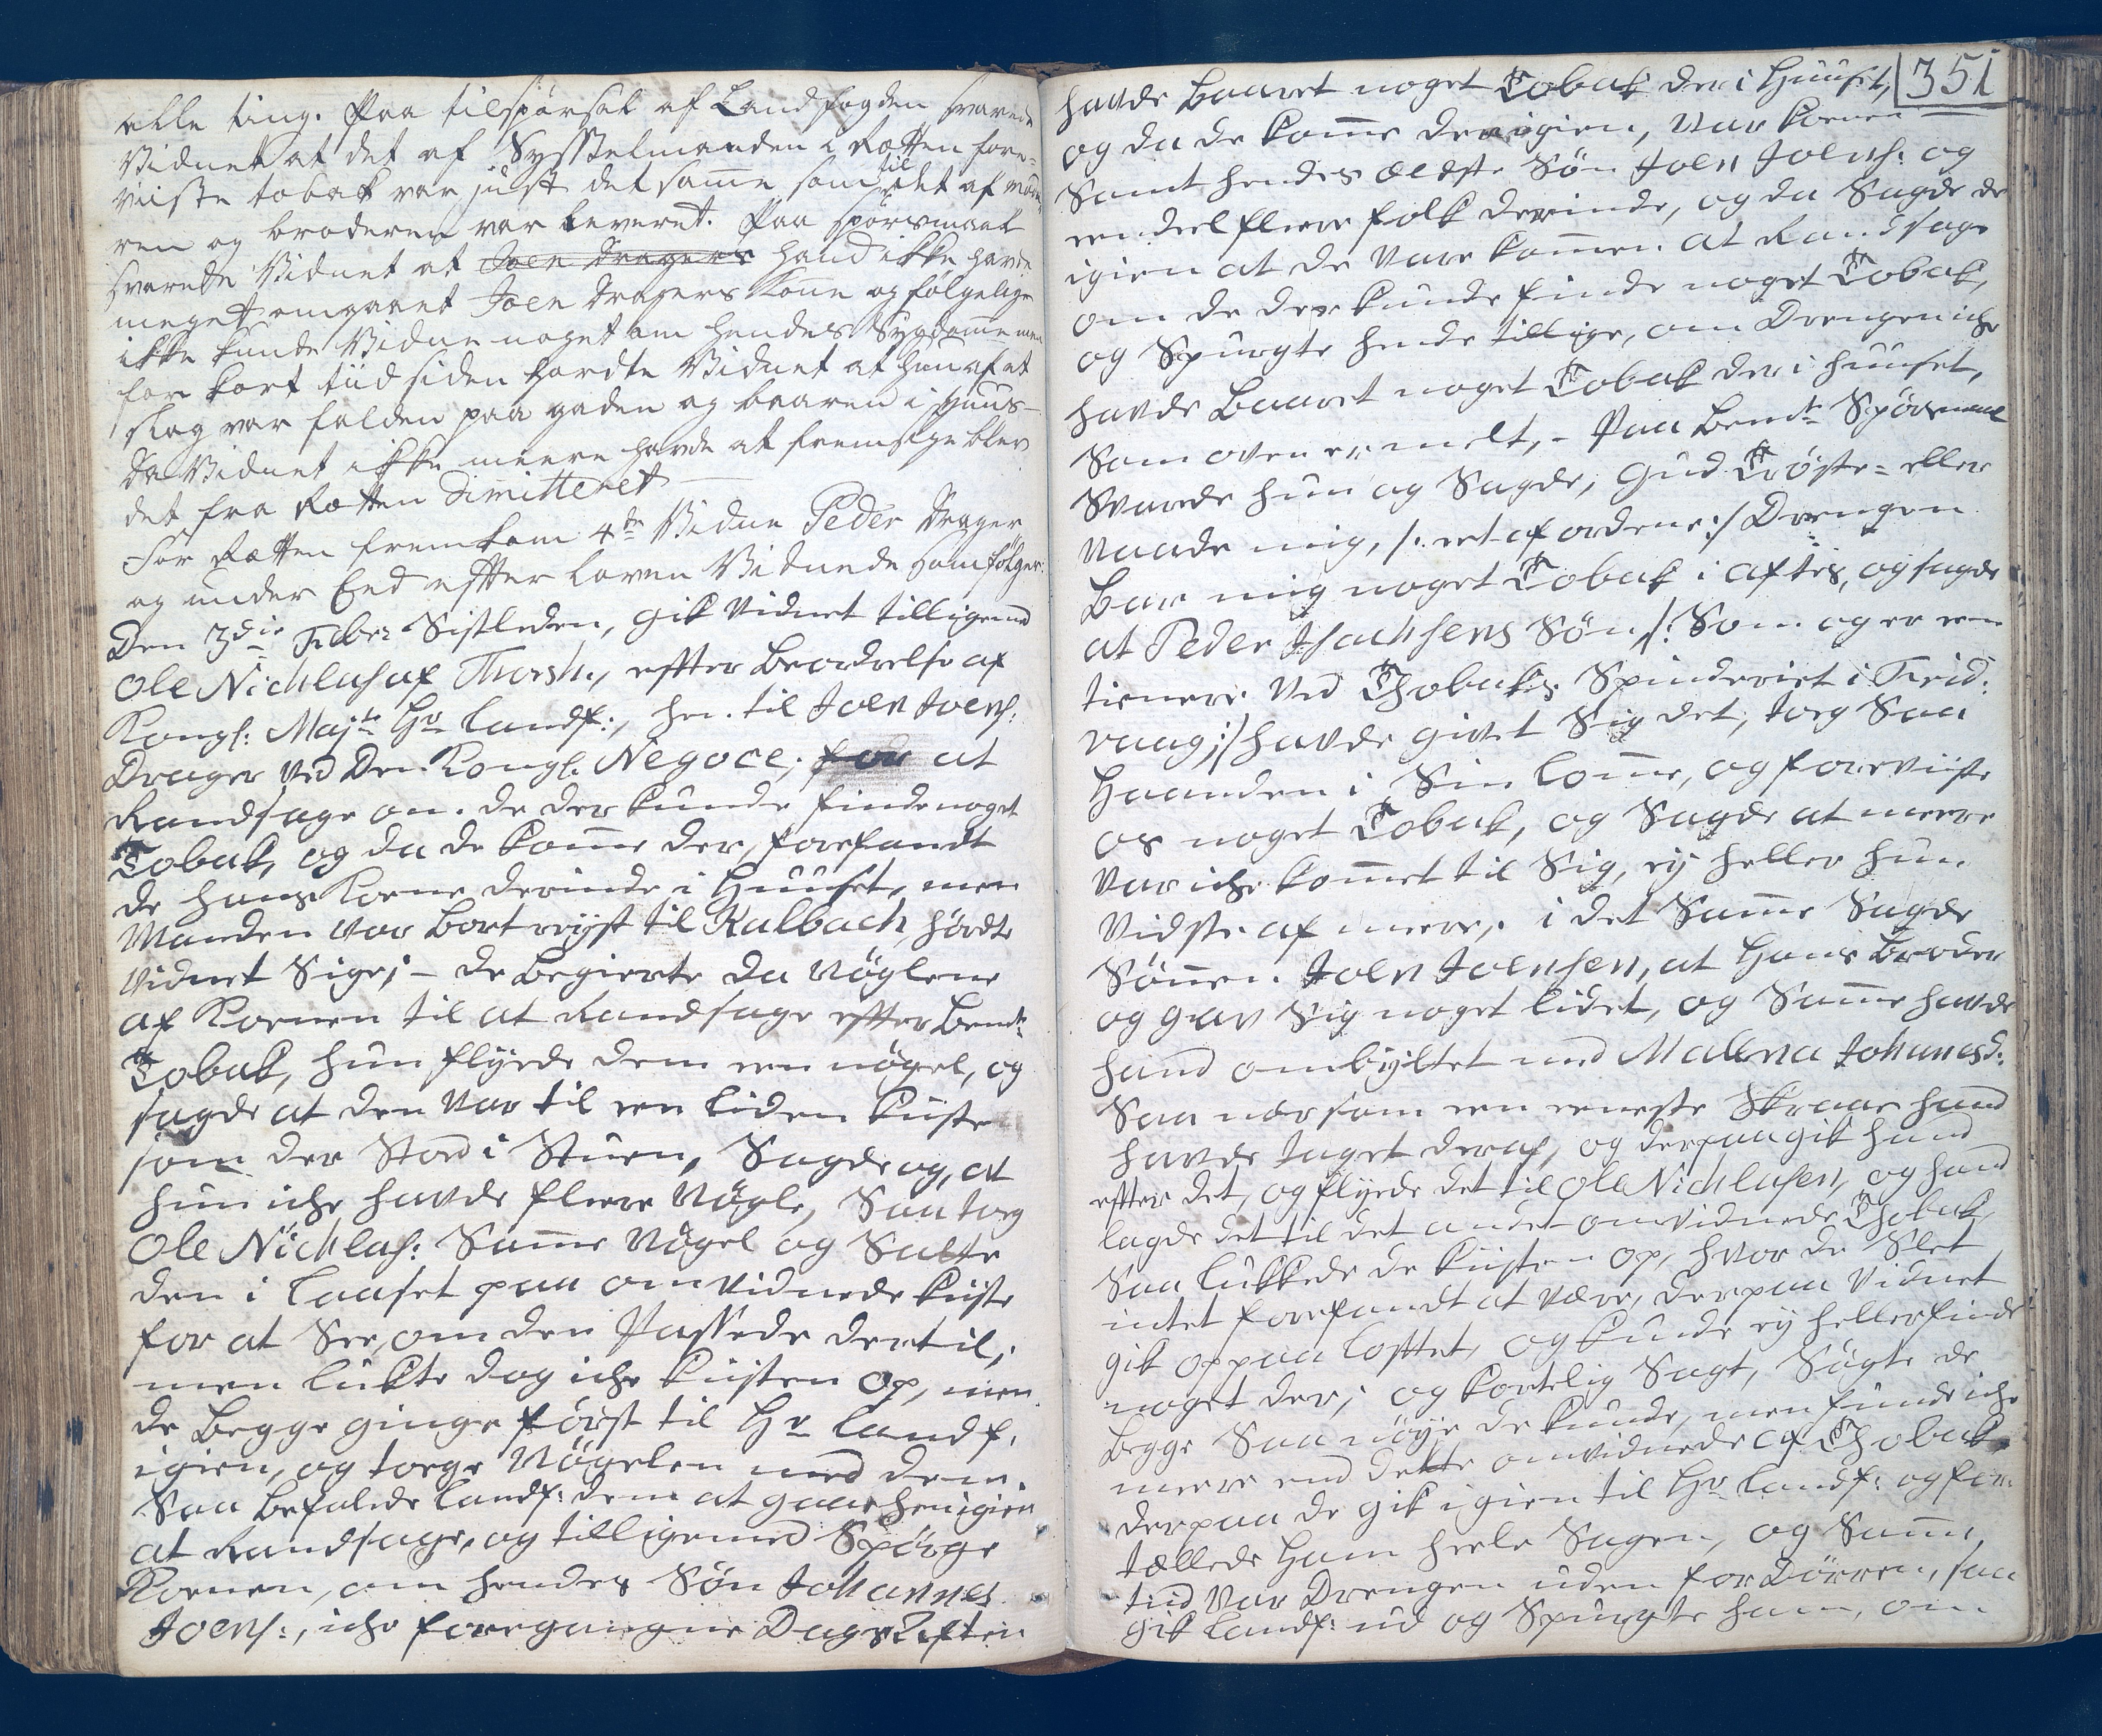 alle ting. Paa tilspörsel af Landfogden svarede
Vidnet at det af Sysselmanden i Rætten fore-
viiste tobak var just det samme som til det af mode-
ren og broderen var leveret. Paa spörsmaal
svarede Vidnet at Joen Dragers hand ikke havde
meget omgaaet Joen Dragers Kone og fölgelig
ikke kunde Vidne noget om hendes Sygdomme men
for kort tiid siden hördte Vidnet at hun af et
slag var falden paa gaden og baaren i Huus-
da Vidnet ikke meere havde at fremsige blev
det fra Rætten Dimitteret
For Rætten fremkom 4de Vidne Peder Drager
og under Eed effter Loven Vidnede som fölger:
Den 3die Feber Sistleden, gik Vidnet tilligemed
Ole Nichlas af Thorsh., effter Beordrelse af
Kongl: Maj:ts Hr Landf:, hen til Joen Joens:
Drager ved Den Kongl. Negoce, for at
Randsage om de der kunde finde noget
Tobak, og da de komme der, forefandt
de hans Koene derinde i Huuset, men
Manden var bortreyst til Kalbach, hördte
Vidnet Sige; - de begierte da Nöglene
af Koenen til at Randsage effter bemte
Tobak, hun flyede dem een nögel, og
sagde at den var til een liden Kiiste
som der Stod i Stuen, Sagde og, at
hun iche havde fleere Nögle, Saa tog
Ole Nichlas: Samme Nögel og Satte
den i Laaset paa omvidnede Kiiste
for at See, om den Passede dertil,
men lukte dog iche Kiisten op, men
de begge ginge först til Hr Landf.
igien, og toege Nögelen med dem.
Saa befalede Landf: dem at gaae hen igien
at Randsage, og tilligemed Spörge
Koenen, om hendes Sön Johannes
Joens:, iche foregangne Dags Aften
351
havde baaret noget Tobak der i Huuset,
og da de komme der igien, var Koenen
Samt hendes ældste Sön Joen Joens: og
eendeel fleere folk derinde, og da Sagde de
igien at de vare kommen at Randsage
om de der kunde finde noget Tobak,
og Spurgte hende tillige, om Drengen iche
havde baaret noget Tobak der i huuset,
Som oven er melt, - Paa bemte Spörsmaal
Svarede hun og Sagde, Gud Tröste- eller
naade mig, /: eet af ordene :/ Drengen
bar mig noget Tobak i aftes, og sagde
at Peder Isachsens Sön /: Som og er een
tienere ved Thobaks Spinderiet i Qvid:
vaag :/ havde givet Sig det, toeg Saa
Haanden i Sin Lomme, og foreviiste
os noget Tobak, og Sagde at meere
var iche kommet til Sig, ey heller hun
vidste af meere, i det Samme Sagde
Sönnen Joen Joensen, at Hans Broder
og gav Sig noget lidet, og Samme havde
hand ombyttet med Malena Johannesd:
Saa nær som een eeneste Skraae hand
havde taget deraf, og derpaa gik hand
effter det, og flyede det til Ole Nichlasen, og hand
lagde det til det andet omvidnede Thobak,
Saa lukkede de Kiisten op, hvor de Slet
intet forefandt at være, derpaa Vidnet
gik op paa Lofttet, og kunde ey heller finde
noget der; og kortelig Sagt, Sögte de
begge Saa nöye de kunde, men funde iche
meere end dette omvidnede af Thobak,
derpaa de gik igien til Hr Landf: og for-
tællede Ham heele Sagen, og Samme
tiid var Drengen uden for Dörren, saa
gik Landf: ud og Spurgte ham, om